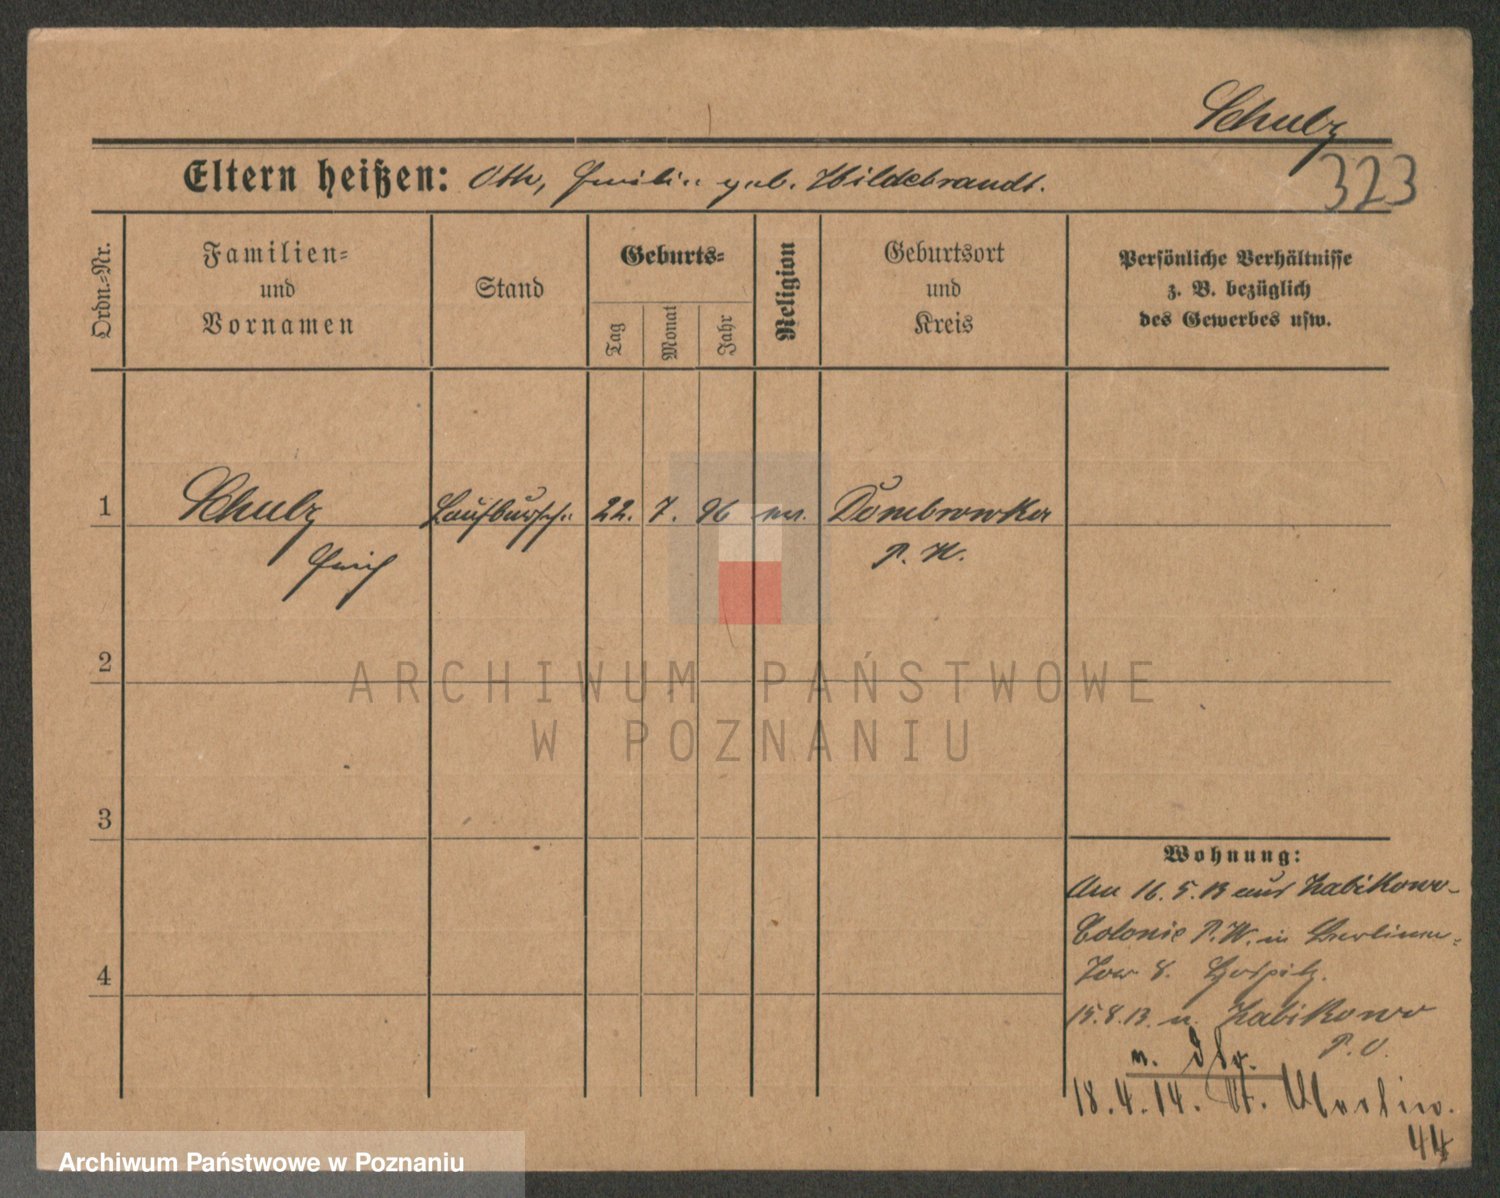 Schulz
323
Eltern heißen: Otto, Emilie geb. Hildebrandt.
Ordn.-Nr.
Familien-
und
Vornamen
Stand
Geburts-
Tag
Monat
Jahr
Religion
Geburtsort
und
Kreis
Persönliche Verhältnisse
z. B. bezüglich
des Gewerbes usw.
1 Schulz Laufbursche 22. 7. 96 ev. Dombrowka
Erich P. W.
2
ARCHIWUM PAŃSTWOWE
W POZNANIU
3
Wohnung:
Am 16.5.13 aus Zabikowo-
Colonie P.W. in Berliner-
Tor 8. Hospitz.
15.8.13. n. Zabikowo
P. O.
4
18.4.14.
44
Archiwum Państwowe w Poznaniu